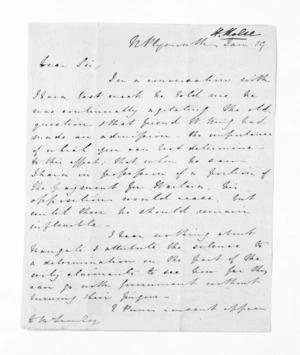 H. Halse
N Plymouth Jan 19.
Dear Sir,
In a conversation with
Ihaia last week he told me he
was continually agitating the old
question & that friend W King had
made an admission - the importance
of which you can best determine -
to this effect, that when he saw
Ihaia in possession of a portion of
the payment for Waitara, his
opposition would cease, but
until then he should remain
inflexible.
I hear nothing about
I attribute the silence to
a determination on the part of the
wily claimants to see how far they
can go with Government without
burning their fingers.
cannot appear
Esq